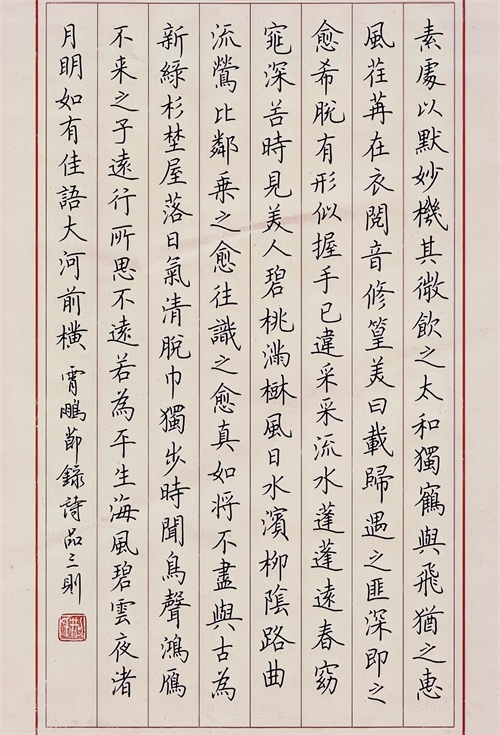 素處以默妙機其微飲之太和獨鶴與飛猶之惠
風荏苒在衣閱音修篁美曰載歸遇之匪深即之
愈希脫有形似握手已違采采流水蓬蓬遠春窈
窕深谷時見美人碧桃滿樹風日水濱柳陰路曲
流鶯比鄰乘之愈往識之愈真如將不盡與古為
新綠杉埜屋落日氣清脫巾獨步時聞鳥聲鴻鴈
不来之子遠行所思不遠若為平生海風碧雲夜渚
月明如有佳語大河前橫 霄鵬節錄詩品三則